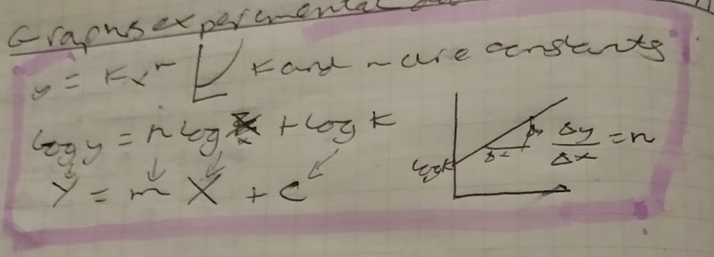 Graphs experimental
y = kxⁿ k and n are constants
log y = n log x + log k
Y = m X + c
log k Δx Δy Δy/Δx = n